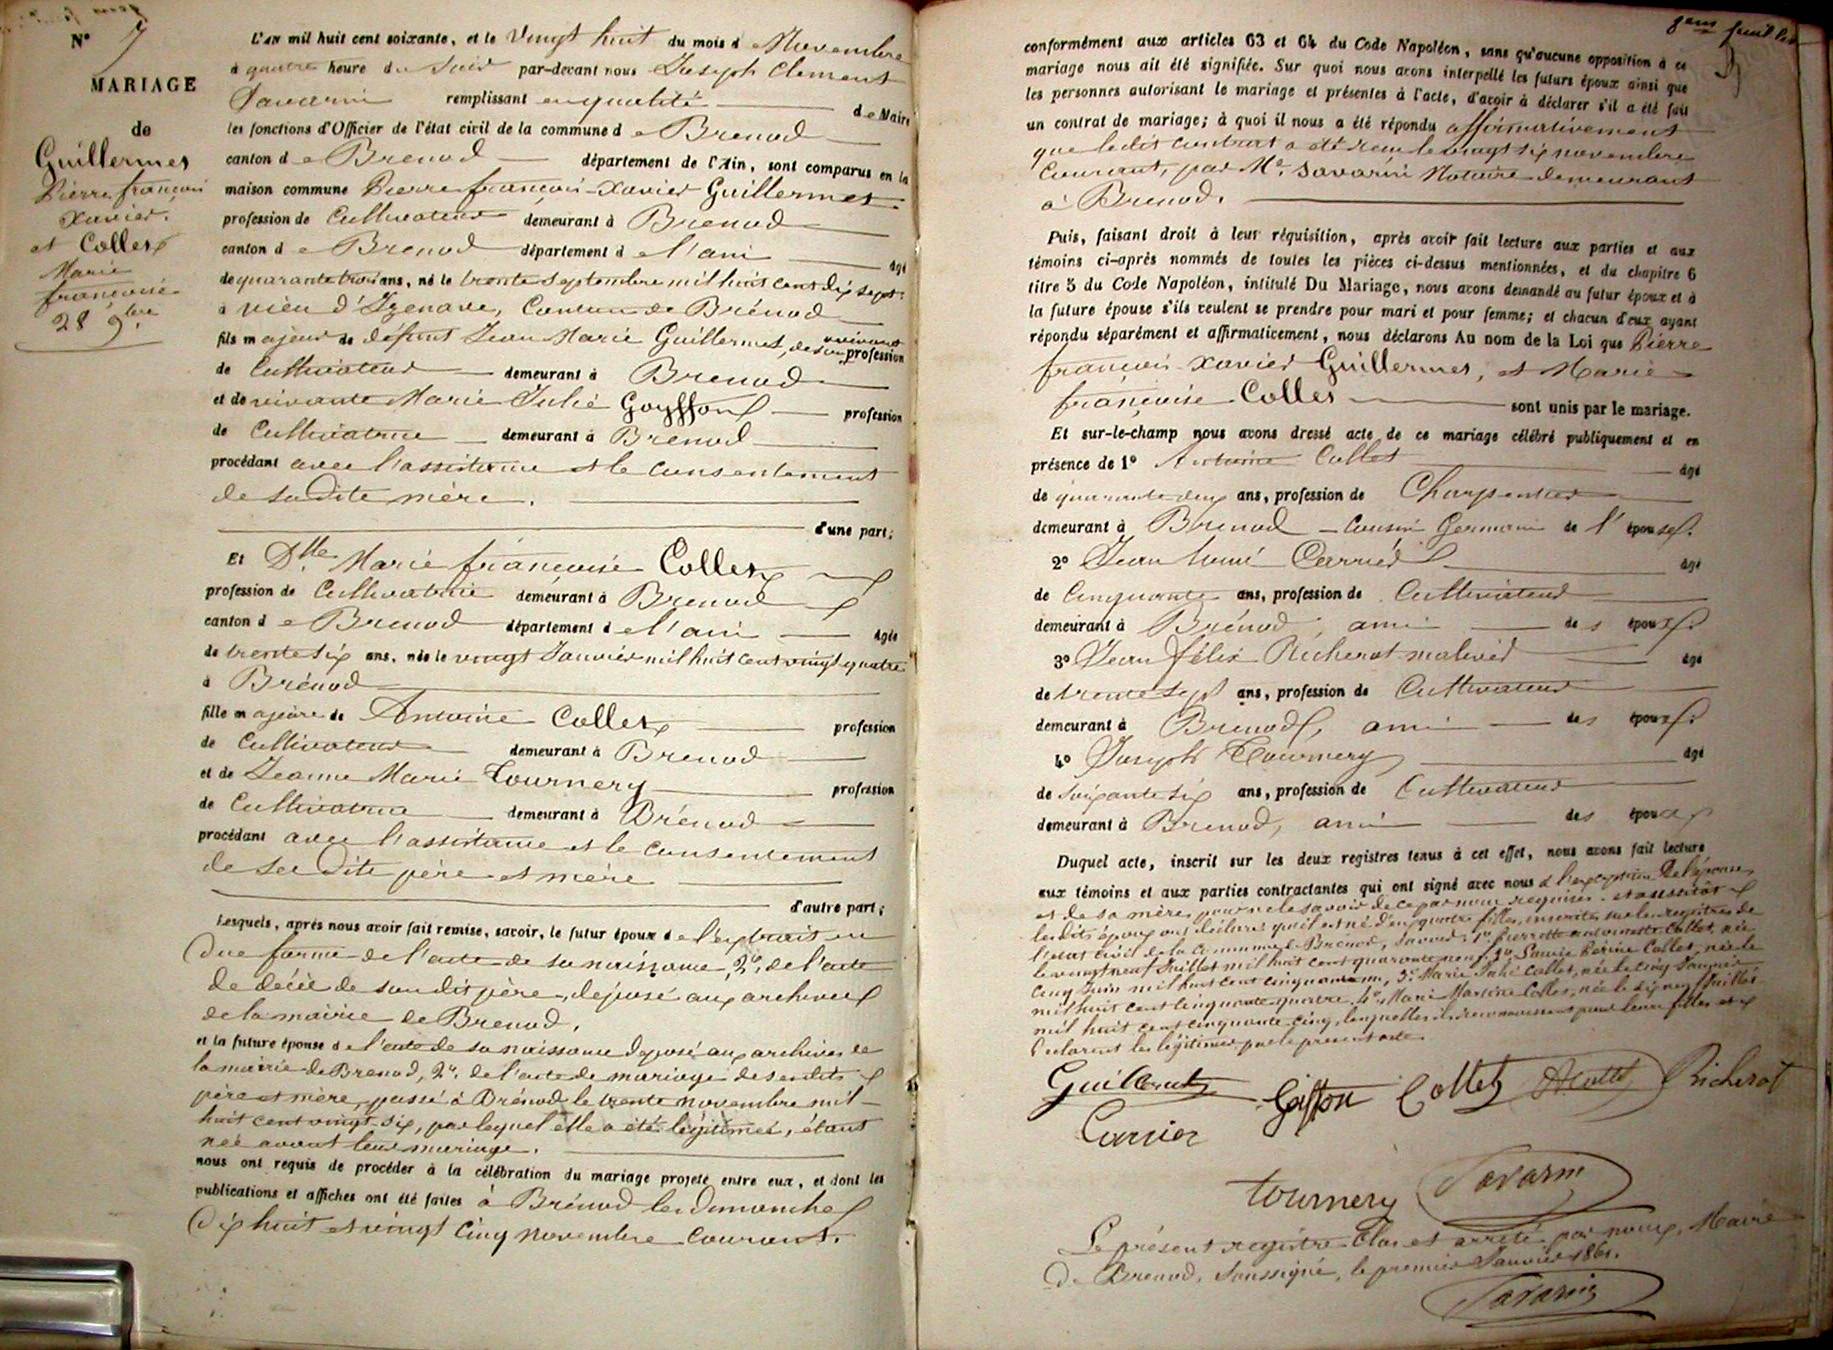 N° 7
MARIAGE
de
Guillermet
Pierre françois
Xavier,
et Collet
Marie
françoise
28 9bre
L'AN mil huit cent soixante, et le Vingt huit du mois de Novembre
à quatre heure du Soir par-devant nous Joseph Clement
Savarin remplissant en qualité de Maire
les fonctions d'Officier de l'état civil de la commune de Brenod
canton de Brenod département de l'Ain, sont comparus en la
maison commune Pierre françois-Xavier Guillermet
profession de Cultivateur demeurant à Brenod
canton de Brenod département de l'ain âgé
de quarante trois ans, né le trente Septembre mil huit cent dix sept
à vieu d'Izenave, Canton de Brénod
fils majeur de défunt Jean Marie Guillermet, de son vivant profession
de Cultivateur demeurant à Brenod
et de vivante Marie Julie Goyffon profession
de Cultivatrice demeurant à Brenod
procédant avec l'assistance et le consentement
de sa dite mère.
d'une part;
Et Dlle Marie françoise Collet
profession de Cultivatrice demeurant à Brenod
canton de Brenod département de l'ain âgée
de trente six ans, née le vingt Janvier mil huit cent vingt quatre
à Brénod
fille majeure de Antoine Collet profession
de Cultivateur demeurant à Brenod
et de Jeanne Marie Tournery profession
de Cultivatrice demeurant à Brénod
procédant avec l'assistance et le consentement
de ses dits père et mère
d'autre part;
Lesquels, après nous avoir fait remise, savoir, le futur époux de l'extrait en
due forme de l'acte de sa naissance, 2° de l'acte
de décès de son dit père, déposé aux archives
de la mairie de Brenod.
et la future épouse de l'acte de sa naissance déposé aux archives de
la mairie de Brenod, 2° de l'acte de mariage de ses dits
père et mère, passé à Brénod le trente novembre mil
huit cent vingt six, par lequel elle a été légitimée, étant
née avant leur mariage.
nous ont requis de procéder à la célébration du mariage projeté entre eux, et dont les
publications et affiches ont été faites à Brénod les Dimanches
Dix huit et vingt cinq novembre courant.
8eme feuillet
conformément aux articles 63 et 64 du Code Napoléon, sans qu'aucune opposition à ce
mariage nous ait été signifiée. Sur quoi nous avons interpellé les futurs époux ainsi que
les personnes autorisant le mariage et présentes à l'acte, d'avoir à déclarer s'il a été fait
un contrat de mariage; à quoi il nous a été répondu affirmativement
que ledit contrat a été reçu le vingt six novembre
Courant, par Me Savarin Notaire demeurant
à Brenod.
Puis, faisant droit à leur réquisition, après avoir fait lecture aux parties et aux
témoins ci-après nommés de toutes les pièces ci-dessus mentionnées, et du chapitre 6
titre 5 du Code Napoléon, intitulé Du Mariage, nous avons demandé au futur époux et à
la future épouse s'ils veulent se prendre pour mari et pour femme; et chacun d'eux ayant
répondu séparément et affirmativement, nous déclarons Au nom de la Loi que Pierre
françois-Xavier Guillermet, et Marie
françoise Collet sont unis par le mariage.
Et sur-le-champ nous avons dressé acte de ce mariage célébré publiquement et en
présence de 1° Antoine Collet âgé
de quarante deux ans, profession de Charpentier
demeurant à Brenod cousin Germain de l' épouse.
2° Jean Carrier âgé
de Cinquante ans, profession de Cultivateur
demeurant à Brénod, ami des époux.
3° Jean félix Richerot âgé
de trente sept ans, profession de Cultivateur
demeurant à Brenod, ami des époux.
4° Joseph Tournery âgé
de soixante six ans, profession de Cultivateur
demeurant à Brenod, ami des époux
Duquel acte, inscrit sur les deux registres tenus à cet effet, nous avons fait lecture
aux témoins et aux parties contractantes qui ont signé avec nous à l'exception de l'épouse
et de sa mère, pour ne le savoir de ce par nous requises. et aussitôt
lesdits époux ont déclaré qu'il est né d'eux quatre filles, inscrites sur les registres de
l'état civil de la Commune de Brenod, savoir: 1° Pierrette Collet, née
le vingt neuf Juillet mil huit cent quarante neuf, 2° Collet, née le
Cinq Juin mil huit cent cinquante un, 3° Marie Julie Collet, née le cinq Janvier
mil huit cent cinquante quatre, 4° Marie Collet, née le dix neuf Juillet
mil huit cent cinquante cinq, lesquelles ils reconnaissent pour leurs filles et
déclarent les légitimer par le présent acte
Guillermet Goiffon Collet A Collet Richerot
Carrier
tournery Savarin
Le présent registre Clos et arrêté par nous, Maire
De Brenod, Soussigné, le premier Janvier 1861.
Savarin